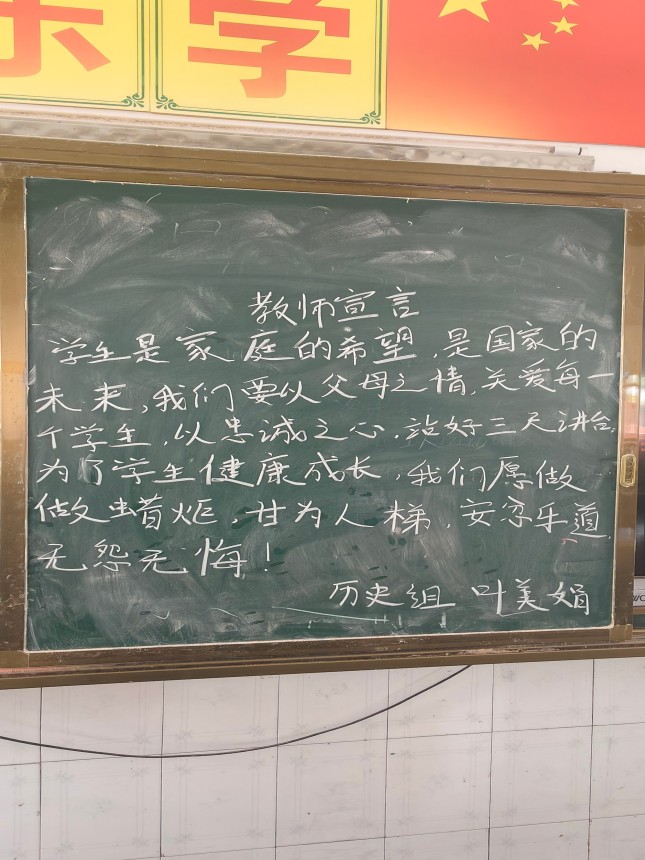 学
教师宣言
学生是家庭的希望,是国家的
未来,我们要以父母之情,关爱每一
个学生,以忠诚之心,站好三尺讲台,
为了学生健康成长,我们愿做
做蜡炬,甘为人梯,安贫乐道,
无怨无悔!
历史组 叶美娟